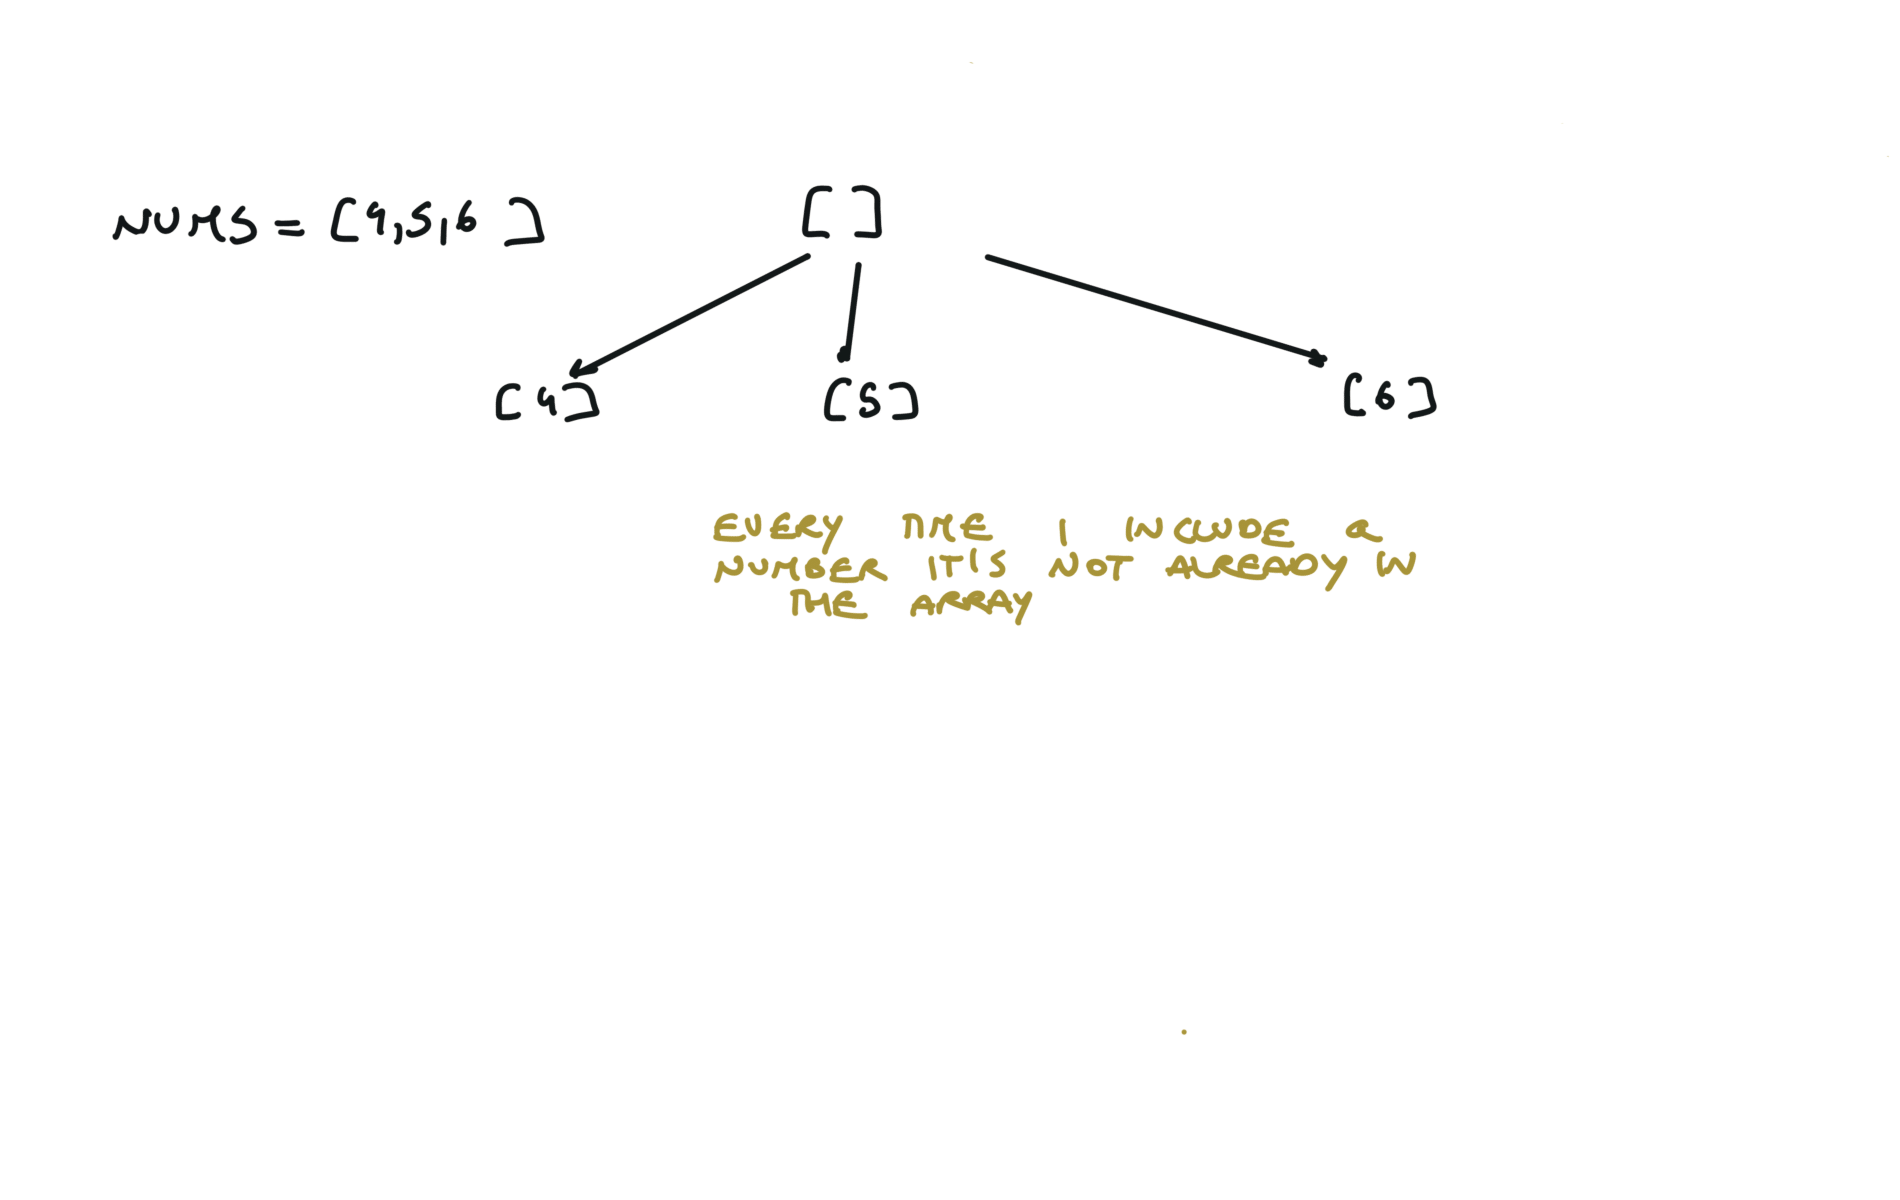 NUMS = [4,5,6 ]
[ ]
[4]
[5]
[6]
EVERY TIME I INCLUDE a
NUMBER IT'S NOT ALREADY IN
THE ARRAY